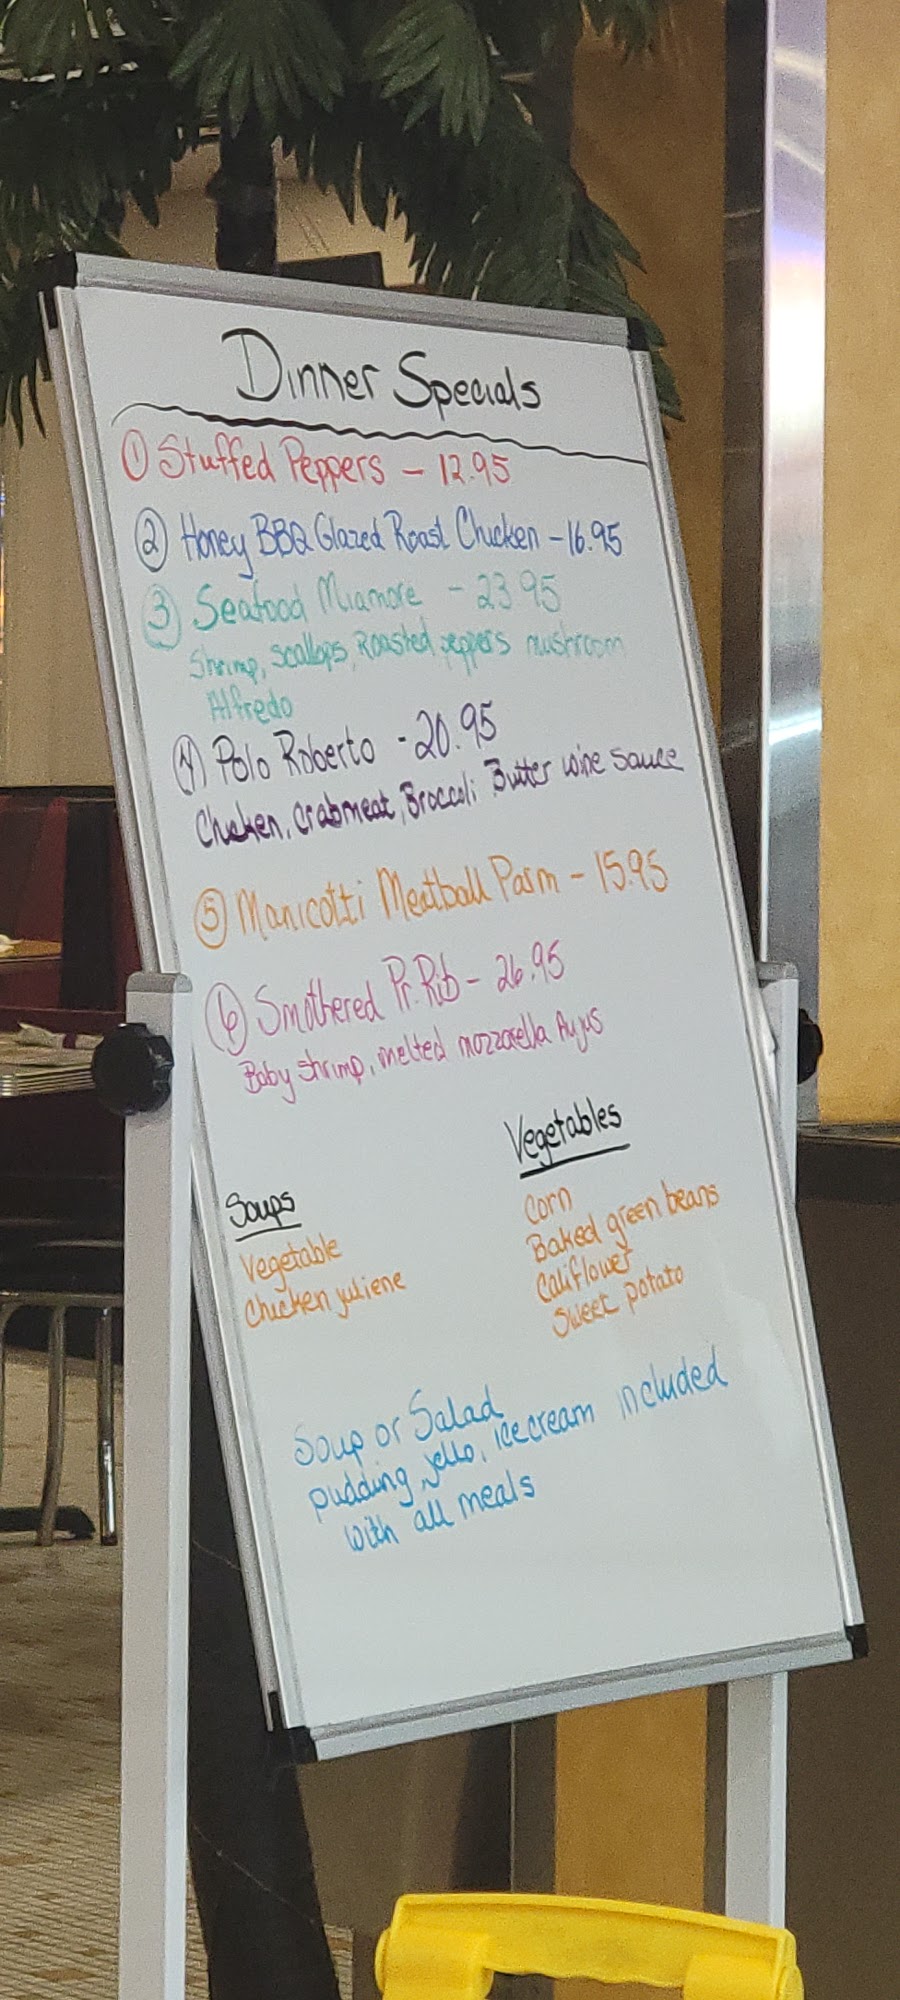 Dinner Specials
① Stuffed Peppers - 12.95
② Honey BBQ Glazed Roast Chicken - 16.95
③ Seafood Miamore - 23.95
Shrimp, scallops, Roasted peppers mushroom
Alfredo
④ Polo Roberto - 20.95
Chicken, Crabmeat, Broccoli Butter wine sauce
⑤ Manicotti Meatball Parm - 15.95
⑥ Smothered Pr. Rib - 26.95
Baby shrimp, melted mozzarella Aujus
Soups
Vegetable
Chicken juliene
Vegetables
Corn
Baked green beans
Califlower
Sweet potato
Soup or Salad
pudding, jello, ice cream included
with all meals